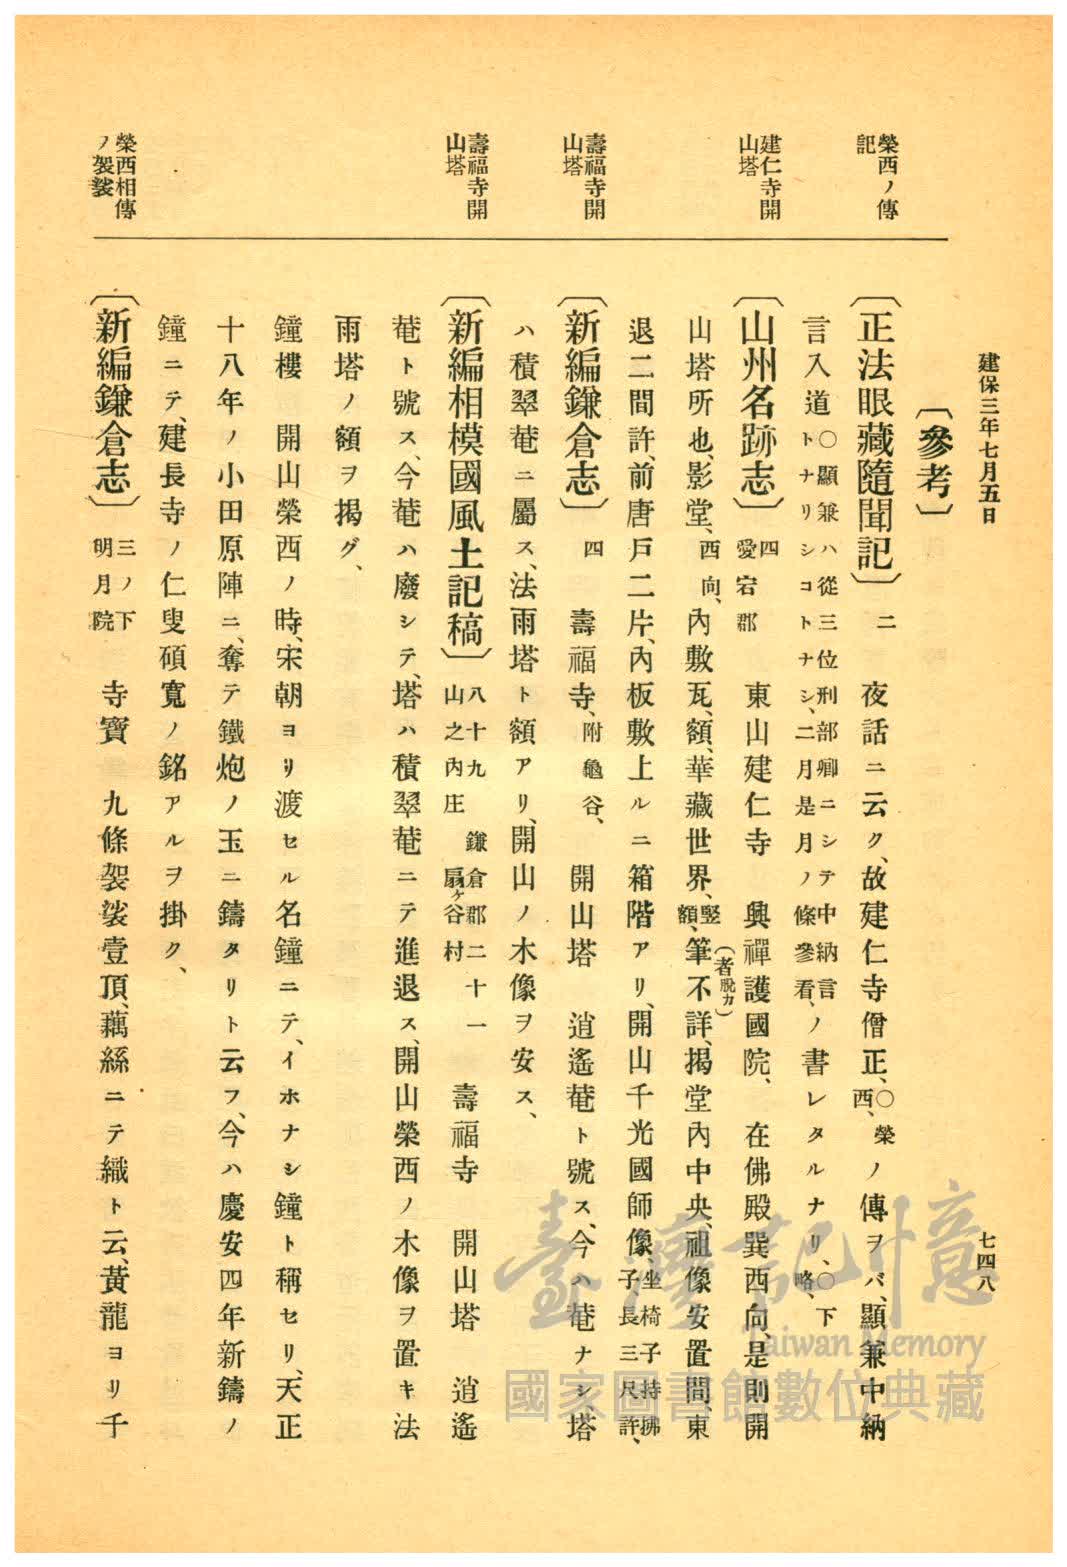 建保三年七月五日
七四八
〔參考〕
榮西ノ傳
記
〔正法眼藏隨聞記〕 二 夜話ニ云ク、故建仁寺僧正、〇榮西、ノ傳ヲバ、顯兼中納
言入道〇顯兼ハ從三位刑部卿ニシテ中納言トナリシコトナシ、二月是月ノ條參看、ノ書レタルナリ、〇下略、
建仁寺開
山塔
〔山州名跡志〕 四 愛宕郡 東山建仁寺 興禪護國院、 在佛殿巽西向、是則開
山塔所也、影堂、西向、內敷瓦、額、華藏世界、竪額、筆不(者脫カ)詳、揭堂內中央、祖像安置間、東
退二間許、前唐戶二片、內板敷上ルニ箱階アリ、開山千光國師像、坐椅子持拂子長三尺許、
壽福寺開
山塔
〔新編鎌倉志〕 四 壽福寺、附龜谷、 開山塔 逍遙菴ト號ス、今ハ菴ナシ、塔
ハ積翠菴ニ屬ス、法雨塔ト額アリ、開山ノ木像ヲ安ス、
壽福寺開
山塔
〔新編相模國風土記稿〕 八十九 鎌倉郡二十一 山之內庄 扇ヶ谷村 壽福寺 開山塔 逍遙
菴ト號ス、今菴ハ廢シテ、塔ハ積翠菴ニテ進退ス、開山榮西ノ木像ヲ置キ法
雨塔ノ額ヲ揭グ、
鐘樓 開山榮西ノ時、宋朝ヨリ渡セル名鐘ニテ、イホナシ鐘ト稱セリ、天正
十八年ノ小田原陣ニ、奪テ鐵炮ノ玉ニ鑄タリト云フ、今ハ慶安四年新鑄ノ
鐘ニテ、建長寺ノ仁叟碩寬ノ銘アルヲ掛ク、
榮西相傳
ノ袈裟
〔新編鎌倉志〕 三ノ下 明月院 寺寶 九條袈裟壹頂、藕絲ニテ織ト云、黃龍ヨリ千
臺灣記憶
Taiwan Memory
國家圖書館數位典藏